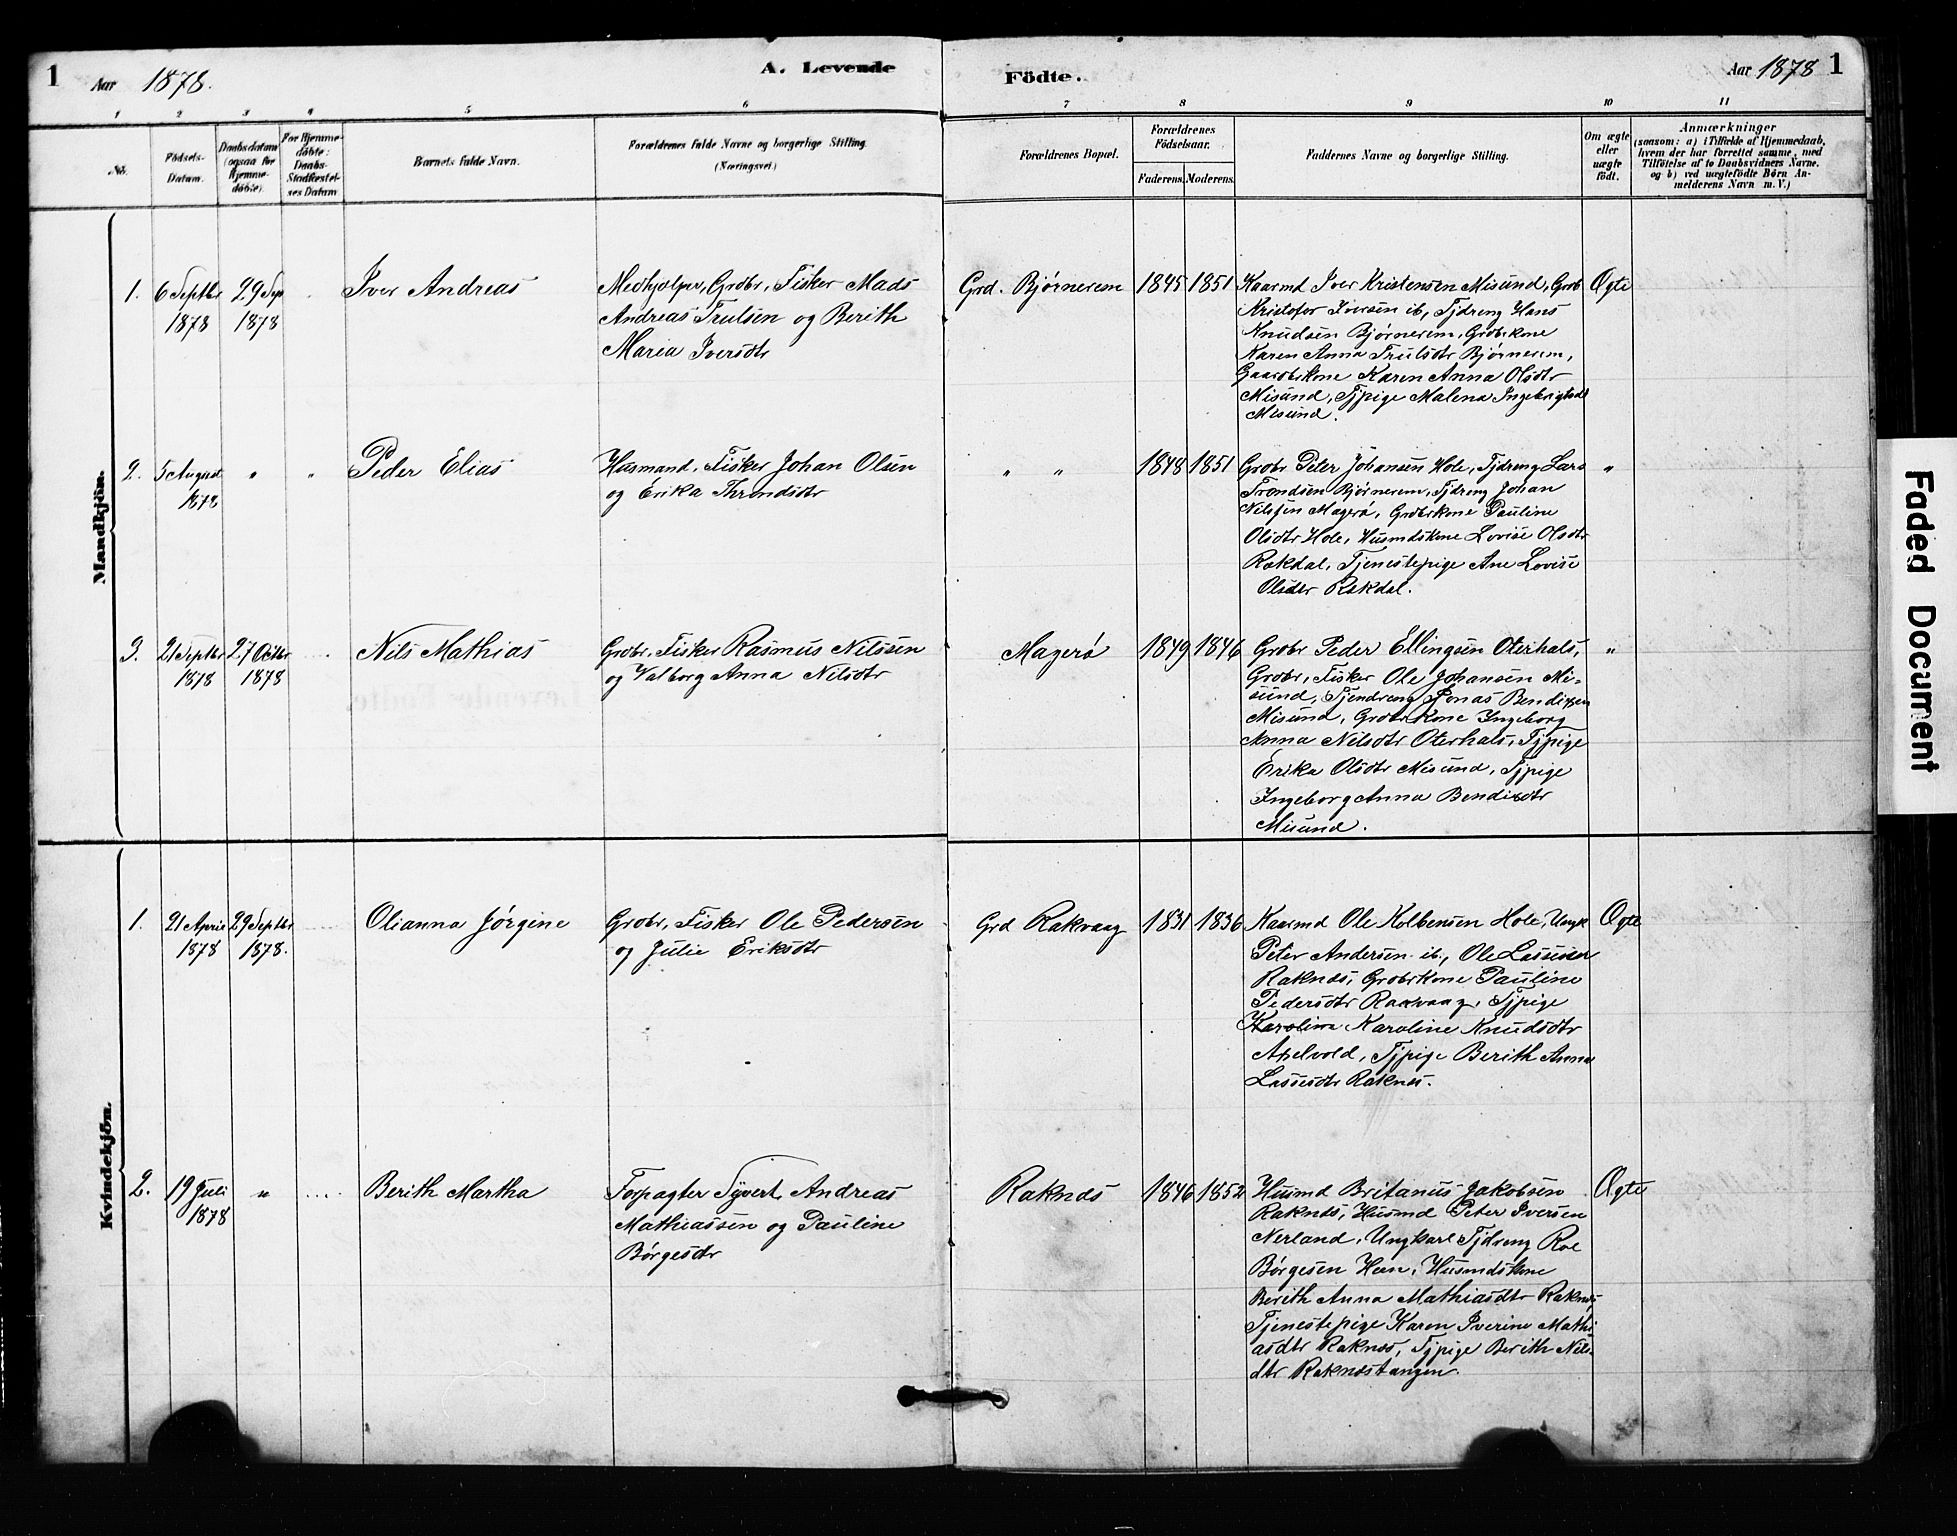 1 Aar 1878. A. Levende Födte. Aar 1878 1
1 2 3 4 5 6 7 8 9 10 11
No.
Födsels-
Datum.
Daabsdatum
(ogsaa for
Hjemme-
döbte).
For Hjemme-
döbte:
Daabs-
Stadfæstel-
ses Datum
Barnets fulde Navn.
Forældrenes fulde Navne og borgerlige Stilling.
(Næringsvei.)
Forældrenes Bopæl.
Forældrenes
Födselsaar.
Faderens. Moderens.
Faddernes Navne og borgerlige Stilling.
Om ægte
eller
uægte
födt.
Anmærkninger
(saasom: a) i Tilfælde af Hjemmedaab,
hvem der har forrettet samme, med
Tilföielse af to Daabsvidners Navne.
og b) ved uægtefödte Börn An-
melderens Navn m. V.)
Mandkjön.
1.
6 Septbr
1878
29 Sep
1878
Iver Andreas
Medhjælper, Grdbr, Fisker Mads
Andreas Trulsen og Berith
Maria Iversdtr
Grd. Bjørnerem
1845 1851
Kaarmd Iver Kristensen Misund, Grdb
Kristofer Iversen ib, Tjdreng Hans
Knudsen Bjørnerem, Grdbrkone
Karen Anna Trulsdtr Bjørnerem,
Gaardbrkone Karen Anna Olsdtr
Misund, Tjpige Malena Ingebrigtsdt
Misund.
Ægte
2.
5 August
1878
" "
Peder Elias
Husmand, Fisker Johan Olsen
og Erika Throndsdtr
" "
1848 1851
Grdbr Peter Johansen Hole, Tjdreng Lars
Trondsen Bjørnerem, Tjdreng Johan
Nilssen Magerø, Grdbrkone Pauline
Olsdtr Hole, Husmdskone Lovise Olsdtr
Rakdal, Tjenestepige Ane Lovise
Olsdtr Rakdal.
"
3.
21 Septbr
1878
27 Octbr
1878
Nils Mathias
Grdbr, Fisker Rasmus Nilssen
og Valborg Anna Nilsdtr
Magerø
1849 1846
Grdbr Peder Ellingsen Oterhals,
Grdbr, Fisker Ole Johansen Mi-
sund, Tjendreng Jonas Bendixsen
Misund, Grdbrkone Ingeborg
Anna Nilsdtr Oterhals, Tjpige
Erika Olsdtr Misund, Tjpige
Ingeborg Anna Bendixdtr
Misund.
"
Kvindekjön.
1.
21 April
1878
29 Septbr
1878.
Olianna Jørgine
Grdbr, Fisker Ole Pedersen
og Julie Eriksdtr
Grd Rakvaag
1831 1836
Kaarmd Ole Kolbensen Hole, Ungk
Peter Andersen ib, Ole Lassesen
Raknæs, Grdbrkone Pauline
Pedersdtr Rakvaag, Tjpige
Karolina Karoline Knudsdtr
Axelvold, Tjpige Berith Anna
Lassesdtr Raknæs.
Ægte
2.
19 Juli
1878
"
Berith Martha
Forpagter Syvert Andreas
Mathiassen og Pauline
Børgesdtr
Raknæs
1846 1852
Husmd Britanus Jakobsen
Raknæs, Husmd Peter Iversen
Nerland, Ungkarl Tjdreng Roe
Børgesen Heen, Husmdskone
Berith Anna Mathiasdtr Raknæs,
Tjenestepige Karen Iverine Mathi-
asdtr Raknæs, Tjpige Berith Nils-
dtr Raknæstangen.
Ægte
Faded Document